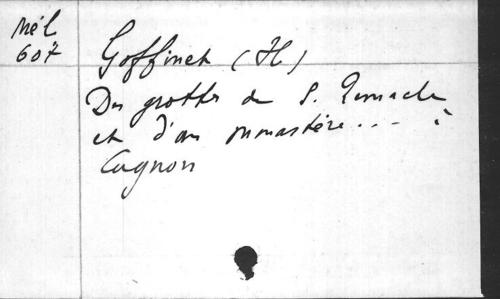 Mél
607
Goffinet (H)
Des grottes de S. Remacle
et d'un monastère... à
Cugnon